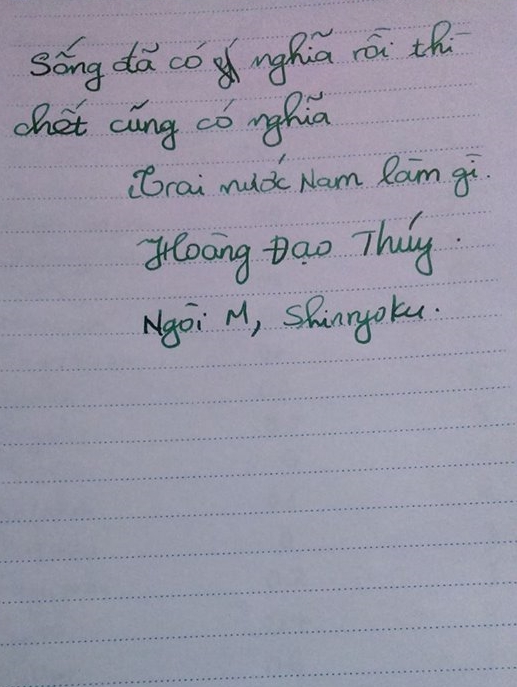 Sống đã có ý nghĩa rồi thì
chết cũng có nghĩa
Trai nước Nam làm gì.
Hoàng Đạo Thúy.
Ngòi M, Shinnyoku.